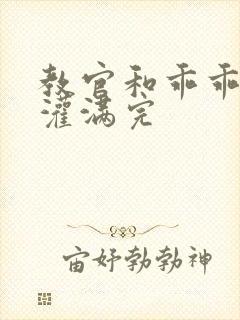 教官和乖乖
灌满完
宙妤勃勃神